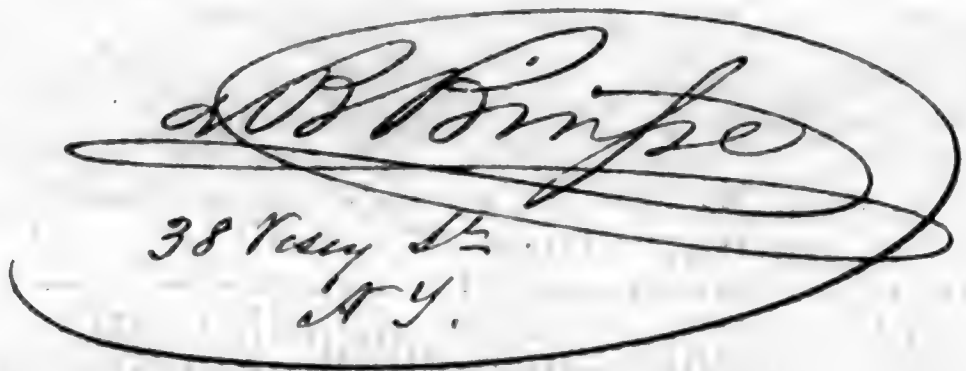 L B Binsse
38 Vesey St.
N Y.